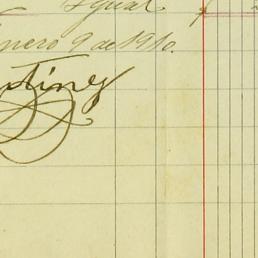 Igual
nero 9 de 1910.
tinez